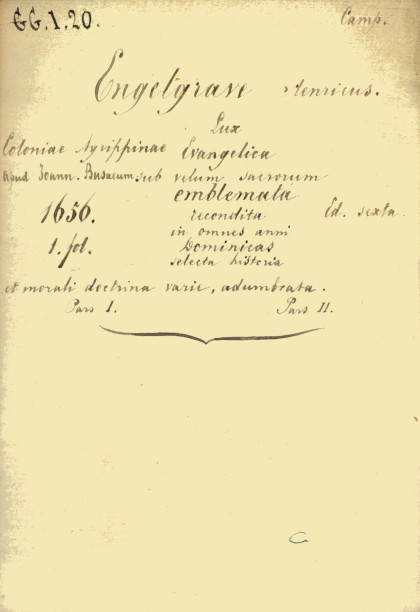 GG.1.20.
Camp.
Engelgrave Henricus.
Lux
Coloniae Agrippinae Evangelica
apud Joann. Busaeum. sub velum sacrorum
emblematum
1656. recondita Ed. sexta.
in omnes anni
1. fol. Dominicas
selecta historia
et morali doctrina varie, adumbrata.
Pars I. Pars II.